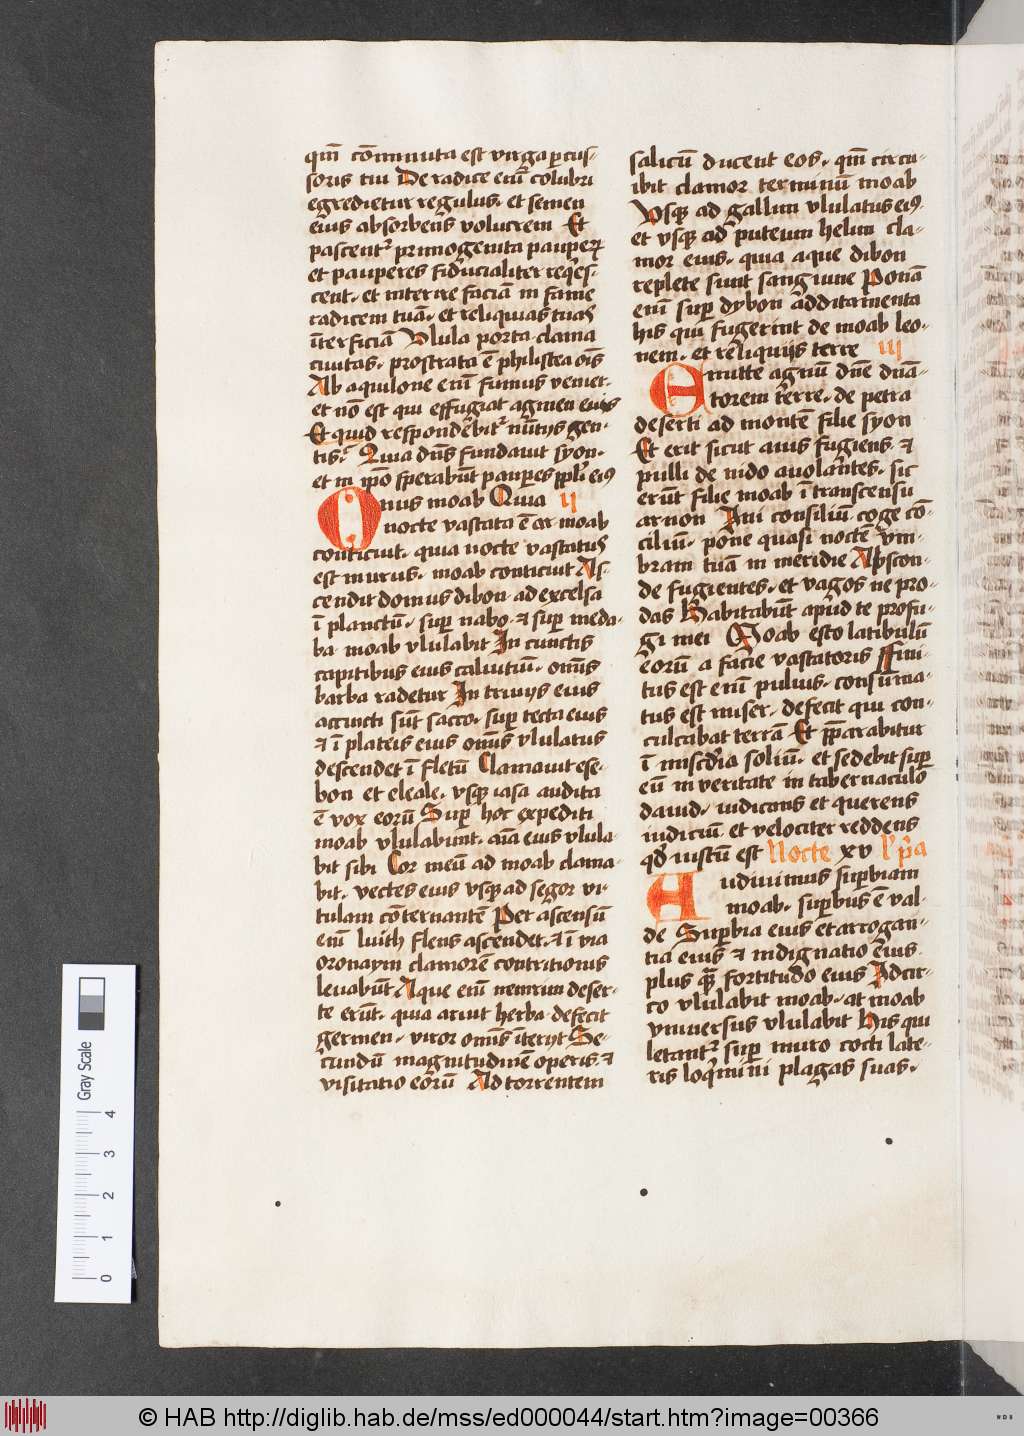 qm̄ cōminuta est virga p̱cus⸗
soris tui De radice em̄ colubri
egredietur regulus· et semen
eius absorbens volucrem Et
pascentꝛ primogenita pauperꝝ
et pauperes fiducialiter req̇es⸗
cent· et interire faciā in fame
radicem tuā· et reliquias tuas
īterficiā Vlula porta· clama
ciuitas· prostrata ē philistea oīs
Ab aquilone em̄ fumus veniet·
et nō est qui effugiat agmen eius
Et quid respondebitꝛ nūtijs gen⸗
tis· Quia dn̄s fundauit syon·
et in ip̄o sperabūt paup̱es pp̄li ei9
Onus moab Quia ij
nocte vastata ē ar moab
conticuit· quia nocte vastatus
est murus· moab conticuit As⸗
cendit domus dibon ad excelsa
ī planctū· sup̱ nabo· ⁊ sup̱ meda⸗
ba moab vlulabit In cunctis
capitibus eius caluitiū· omīs
barba radetur In triuijs eius
accincti sūt sacco· sup̱ tecta eius
⁊ ī plateis eius omīs vlulatus
descendet ī fletū Clamauit ese⸗
bon et eleale· vsqꝫ iasa audita
ē vox eorū Sup̱ hoc expediti
moab vlulabunt· aīa eius vlula⸗
bit sibi Cor meū ad moab clama⸗
bit· vectes eius vsqꝫ ad segor vi⸗
tulam cōternantē Per ascensū
em̄ luith flens ascendet· ⁊ ī via
oronaym clamorē contritionis
leuabūt Aque em̄ nemrim deser⸗
te erūt· quia aruit herba· defecit
germen· viror omīs īterijt Se⸗
cundū magnitudinē operis· ⁊
visitatio eorū Ad torrentem
salicū ducent eos· qm̄ circu⸗
ibit clamor terminū moab
Vsqꝫ ad gallim vlulatus ei9·
et vsqꝫ ad puteum helim cla⸗
mor eius· quia aque dibon
replete sunt sanguine Ponā
em̄ sup̱ dybon additamenta
his qui fugerint de moab leo⸗
nem· et reliquijs terre iij
Emitte agnū dn̄e dn̄a⸗
torem terre· de petra
deserti ad montē filie syon
Et erit sicut auis fugiens· ⁊
pulli de nido auolantes· sic
erūt filie moab ī transcensu
arnon Ini consiliū coge cō⸗
ciliū· pone quasi noctē vm⸗
bram tuā in meridie Abscon⸗
de fugientes· et vagos ne pro⸗
das Habitabūt apud te profu⸗
gi mei Moab esto latibulū
eorū a facie vastatoris Fini⸗
tus est em̄ puluis· consūma⸗
tus est miser· defecit qui con⸗
culcabat terrā Et p̄parabitur
ī misc̄dia soliū· et sedebit sup̱
eū in veritate in tabernaculo
dauid· iudicans et querens
iudiciū et velociter reddens
qd̄ iustū est Nocte xv l' p̄a
Audiuimus sup̱biam
moab· sup̱bus ē val⸗
de Sup̱bia eius et arrogan⸗
tia eius ⁊ indignatio eius
plus qꝫ̄ fortitudo eius Idcir⸗
co vlulabit moab· at moab
vniuersus vlulabit His qui
letantꝛ sup̱ muro cocti late⸗
ris loq̇mini plagas suas·
Gray Scale
4
3
2
1
0
© HAB http://diglib.hab.de/mss/ed000044/start.htm?image=00366